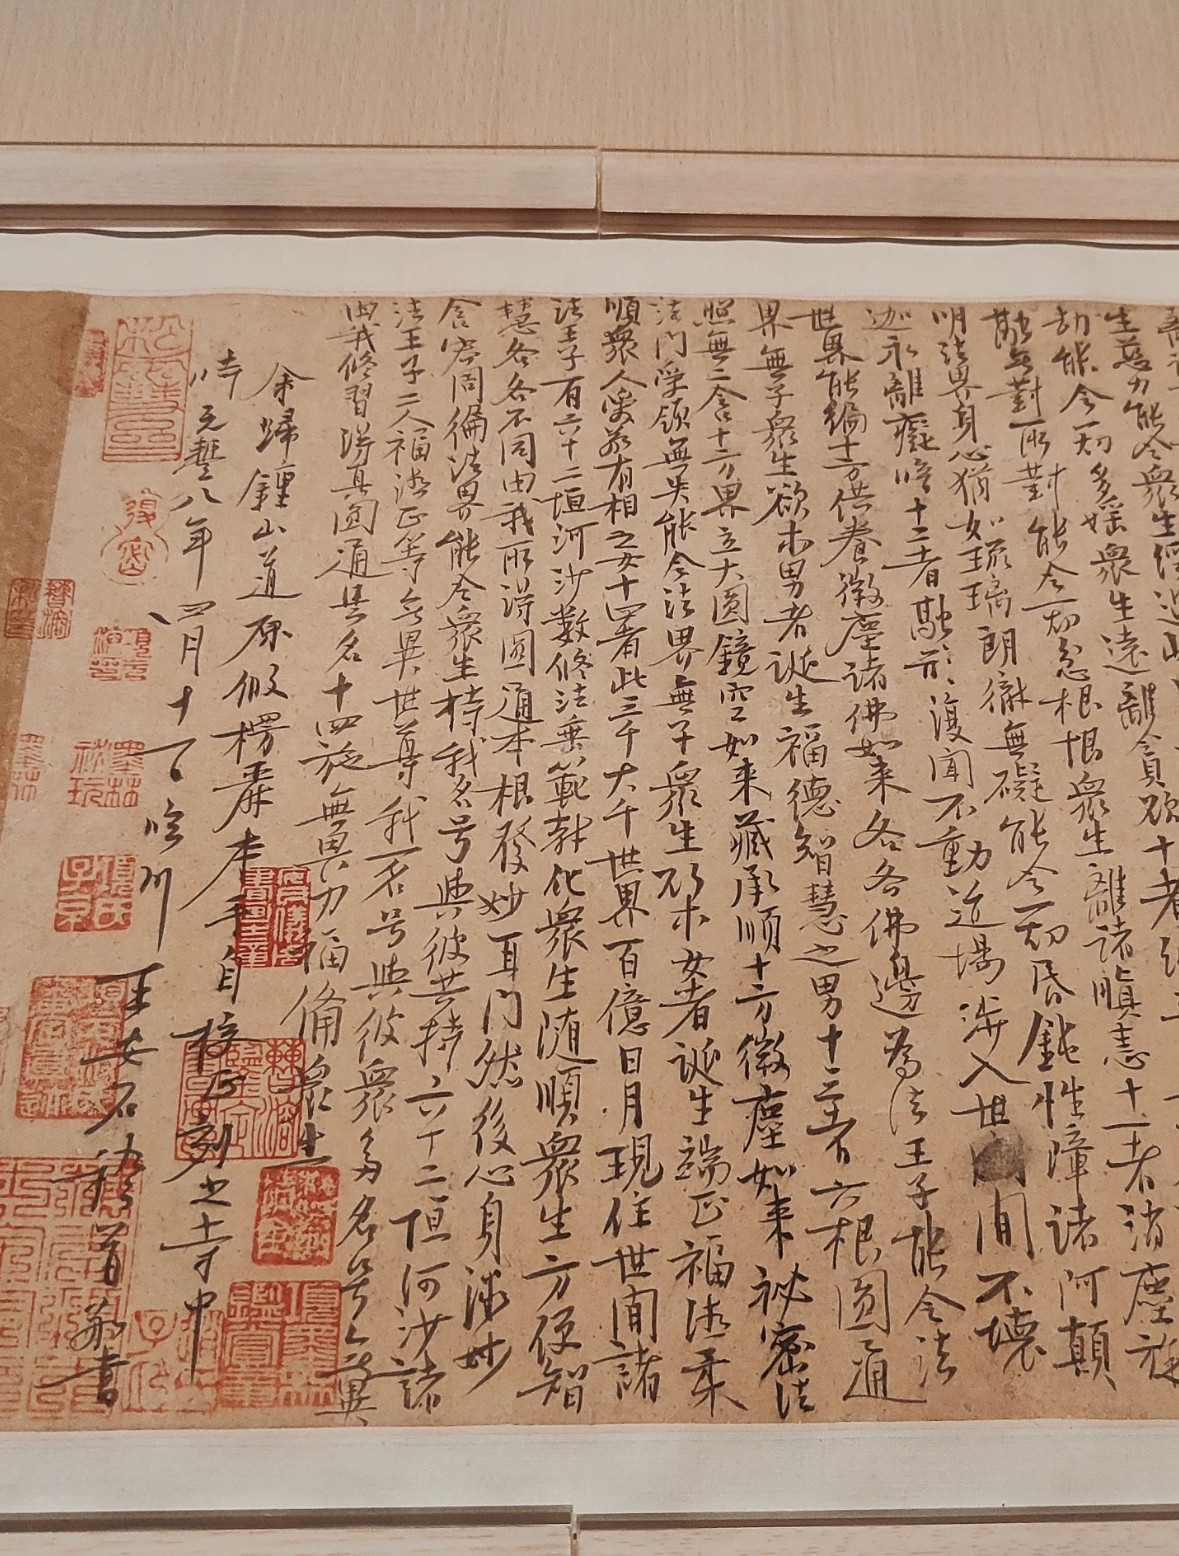 生慈力能令衆生經過
劫能令一切多婬衆生遠離貪欲十者純
融無對所對能令一切忿恨衆生離諸嗔恚十一者消塵旋
明法界身心猶如琉璃朗徹無礙能令一切昏鈍性障諸阿顛
迦永離癡暗十二者融形復聞不動道場涉入世間不壞
世界能徧十方供養微塵諸佛如來各各佛邊為法王子能令法
界無子衆生欲求男者誕生福德智慧之男十三者六根圓通
照無二含十方界立大圓鏡空如來藏承順十方微塵如來祕密法
法門受領無失能令法界無子衆生欲求女者誕生端正福德柔
順衆人愛敬有相之女十四者此三千大千世界百億日月現住世間諸
法王子有六十二垣河沙數修法垂範教化衆生随順衆生方便智
慧各各不同由我所得圓通本根發妙耳門然後心身微妙
含容周徧法界能令衆生持我名号與彼共持六十二恒河沙諸
法王子二人福德正等無異世尊我一名号與彼衆多名号無異
由我修習得真圓通是名十四施無畏力福備衆生
余歸鍾山道原假楞嚴本手自校正刻之寺中
時元豐八年四月十一日臨川王安石稽首敬書